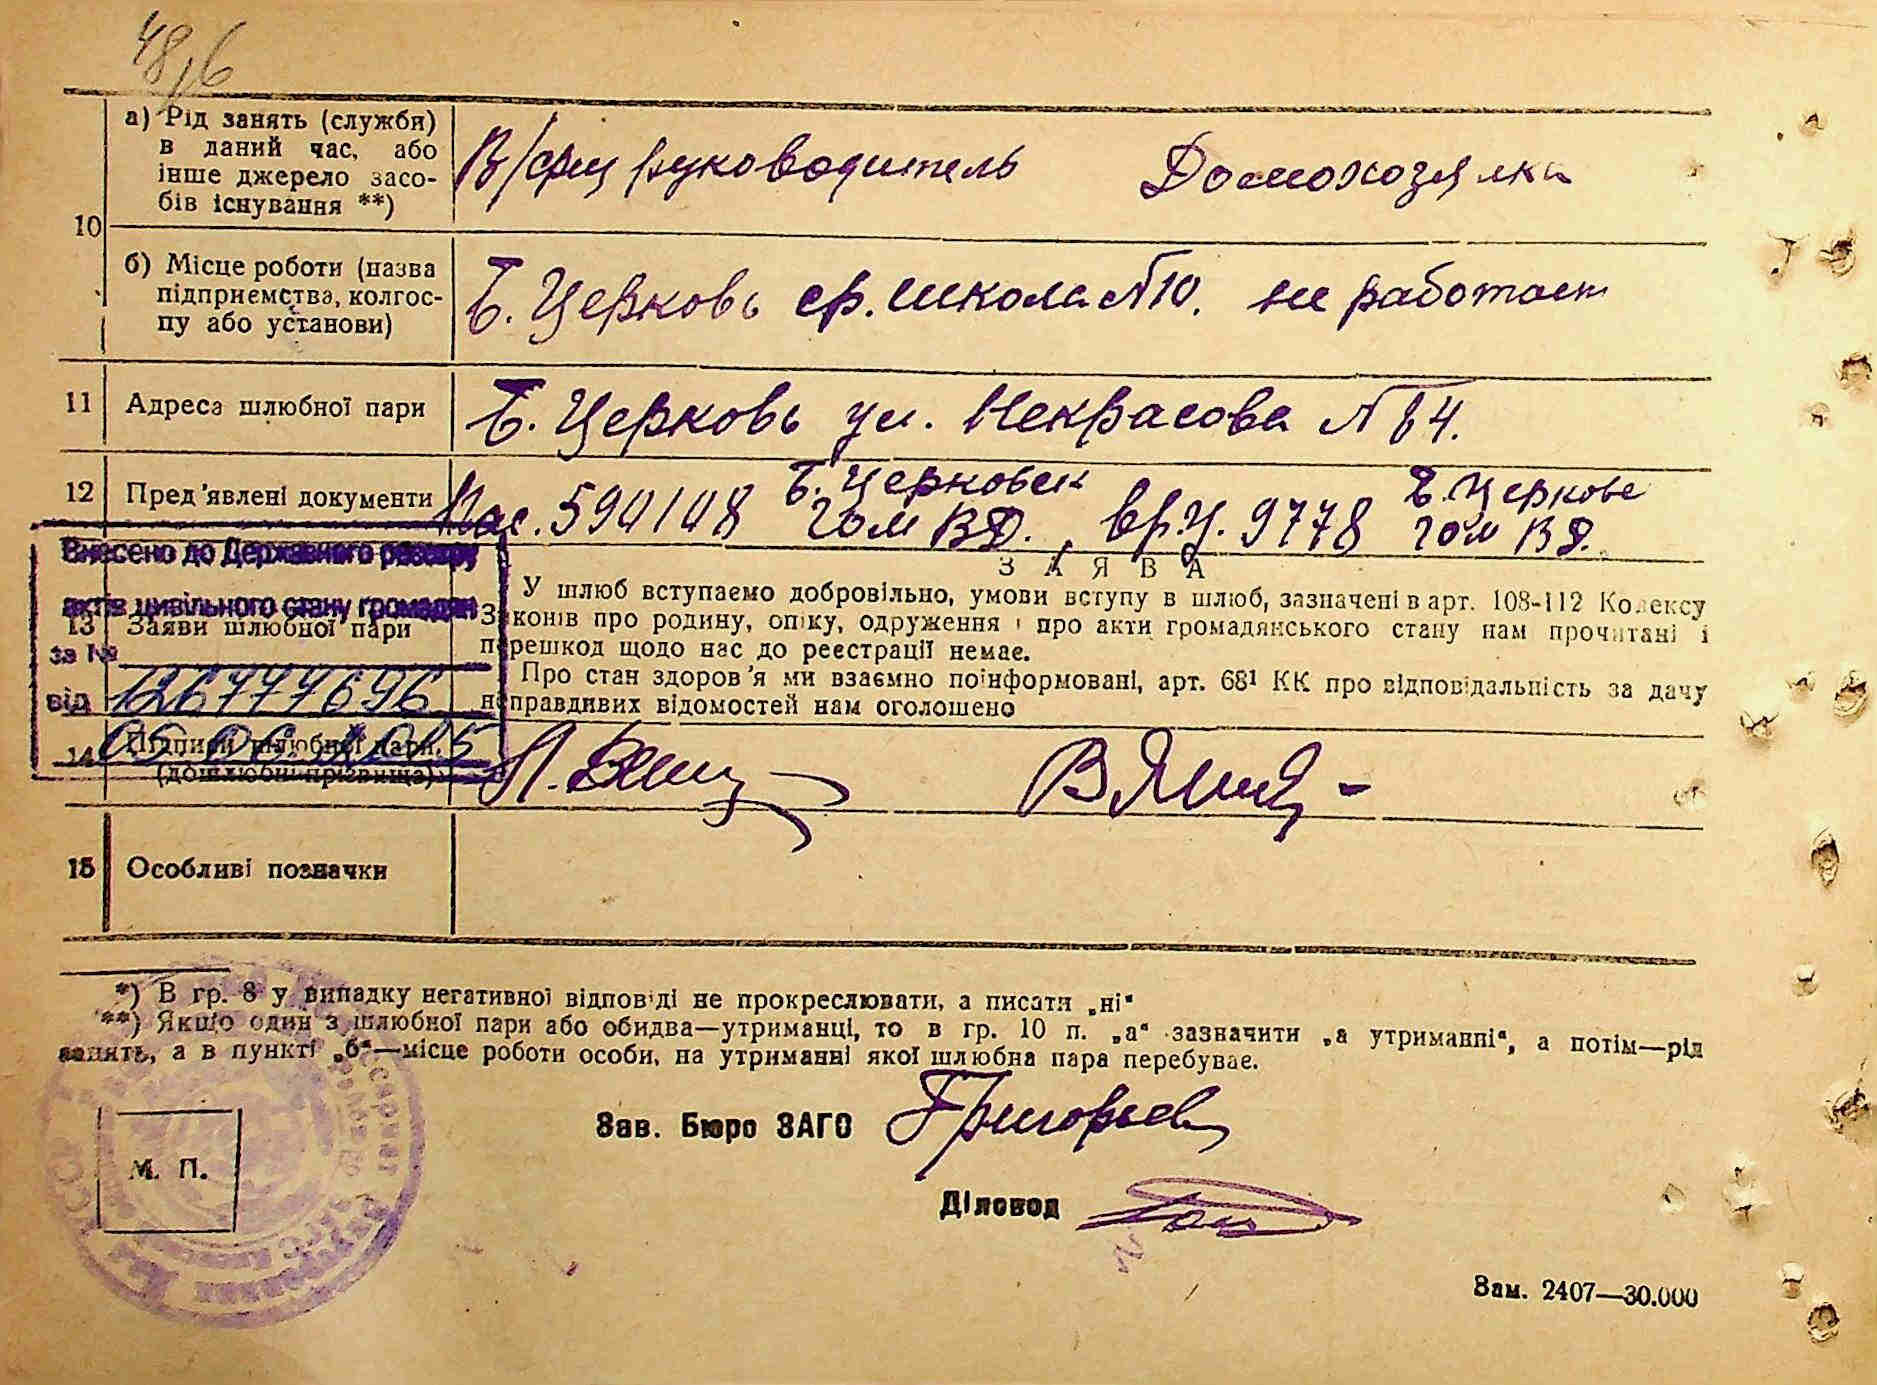 48,6
10
а) Рід занять (служби)
в даний час, або
інше джерело засо-
бів існування **)
В/физ руководитель
Домохозяйка
б) Місце роботи (назва
підприємства, колгос-
пу або установи)
Б. Церковь ср. школа №10.
не работает
11 Адреса шлюбної пари
Б. Церковь ул. Некрасова № 84.
12 Пред'явлені документи
Пас. 590108 Б. Церковск ГОМ ВД.,
вр. у. 9778 Б. Церков ГОМ ВД.
Внесено до Державного реєстру
актів цивільного стану громадян
за № 126777696
від 05.06.2015
13 Заяви шлюбної пари
ЗАЯВА
У шлюб вступаємо добровільно, умови вступу в шлюб, зазначені в арт. 108-112 Кодексу
Законів про родину, опіку, одруження і про акти громадянського стану нам прочитані і
перешкод щодо нас до реєстрації немає.
Про стан здоров'я ми взаємно поінформовані, арт. 68¹ КК про відповідальність за дачу
неправдивих відомостей нам оголошено
14 Підписи шлюбної пари.
(дошлюбні прізвища)
15 Особливі позначки
*) В гр. 8 у випадку негативної відповіді не прокреслювати, а писати „ні“
**) Якщо один з шлюбної пари або обидва—утриманці, то в гр. 10 п. „а“ зазначити „а утриманні“, а потім—рід
занять, а в пункті „б“—місце роботи особи, на утриманні якої шлюбна пара перебуває.
М. П.
Зав. Бюро ЗАГС Григорьев
Діловод
Зам. 2407—30.000